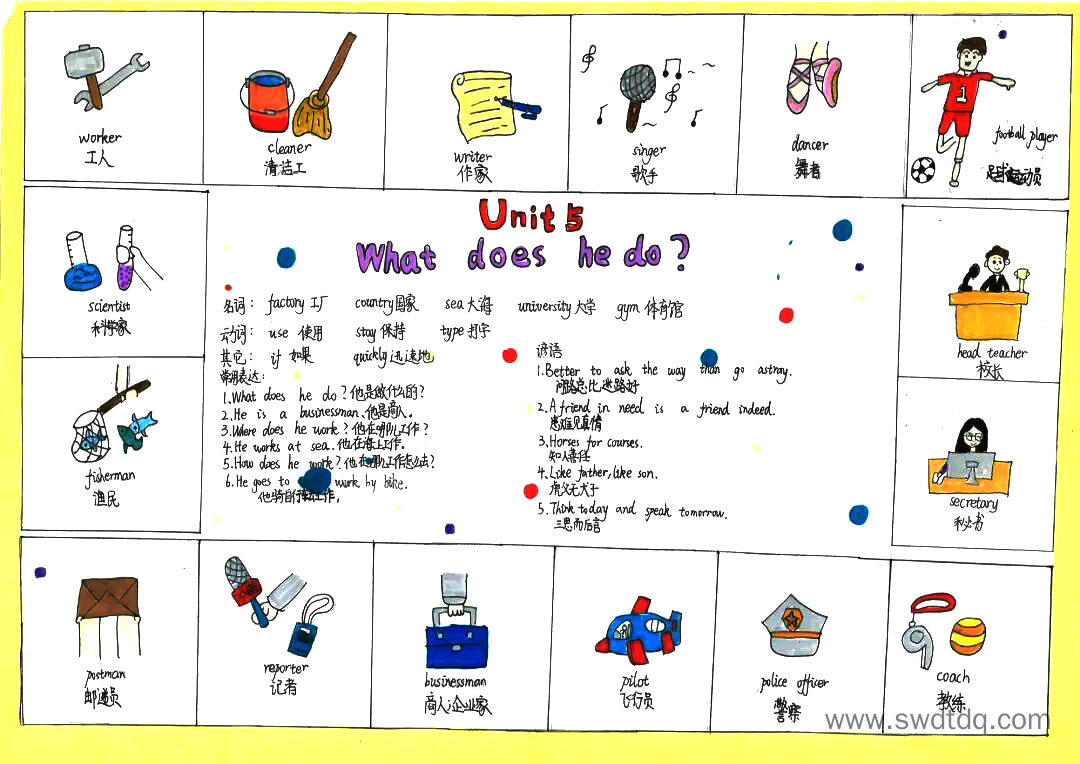 worker
工人
cleaner
清洁工
writer
作家
singer
歌手
dancer
舞者
football player
足球运动员
1
scientist
科学家
fisherman
渔民
Unit 5
What does he do?
名词: factory 工厂 country 国家 sea 大海 university 大学 gym 体育馆
动词: use 使用 stay 保持 type 打字
其它: if 如果 quickly 迅速地
常用表达:
1. What does he do? 他是做什么的?
2. He is a businessman. 他是商人。
3. Where does he work? 他在哪儿工作?
4. He works at sea. 他在海上工作。
5. How does he work? 他在哪儿工作怎么去?
6. He goes to work by bike.
他骑自行车去工作。
谚语
1. Better to ask the way than go astray.
问路总比迷路好
2. A friend in need is a friend indeed.
患难见真情
3. Horses for courses.
知人善任
4. Like father, like son.
虎父无犬子
5. Think today and speak tomorrow.
三思而后言
head teacher
校长
secretary
秘书
postman
邮递员
reporter
记者
businessman
商人;企业家
pilot
飞行员
police officer
警察
coach
教练
www.swdtdq.com